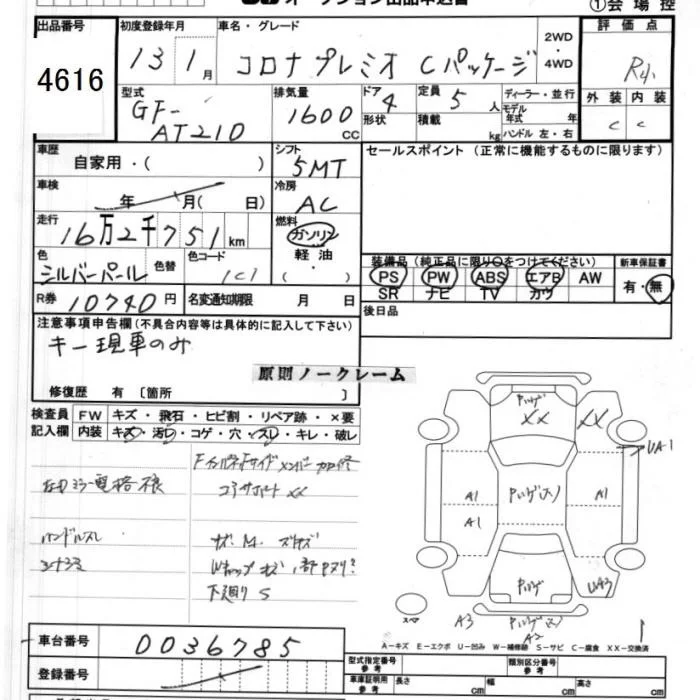 ①会場控
出品番号 初度登録年月 車名・グレード 2WD ・ 4WD 評価点
4616 13 1月 コロナプレミオ Cパッケージ
外装 内装
C C
型式 排気量 ドア 定員 ディーラー・並行
GF-AT210 1600 CC 4 5人 モデル年式 年
形状 積載 kg ハンドル 左・右
車歴 シフト セールスポイント (正常に機能するものに限ります)
自家用・( ) 5MT
車検 冷房
年 月( 日) AC
走行 燃料
16万2千751km ガソリン
軽油
色 色替 色コード 装備品(純正品に限り○をつけてください) 新車保証書
シルバーパール 1C1 PS PW ABS エアB AW 有・無
R券 10740円 名変通知期限 月 日 SR ナビ TV カワ
注意事項申告欄(不具合内容等は具体的に記入して下さい) 後日品
キー現車のみ
原則ノークレーム
修復歴 有 〔箇所 〕
検査員 FW キズ・飛石・ヒビ割・リペア跡・×要
記入欄 内装 キズ・汚レ・コゲ・穴・スレ・キレ・破レ
XX XX
UA1
コアサポート XX
左電ミラー電格様
A1 A1
A1
ハンドルスレ
下廻りS
UA3
スペア A3 A2
A-キズ E-エクボ U-凹み W-補修跡 S-サビ C-腐食 XX-交換済
車台番号 0036785
登録番号
型式指定番号 参考 類別区分番号 参考
車庫証明用 参考 長さ cm 幅 cm 高さ cm